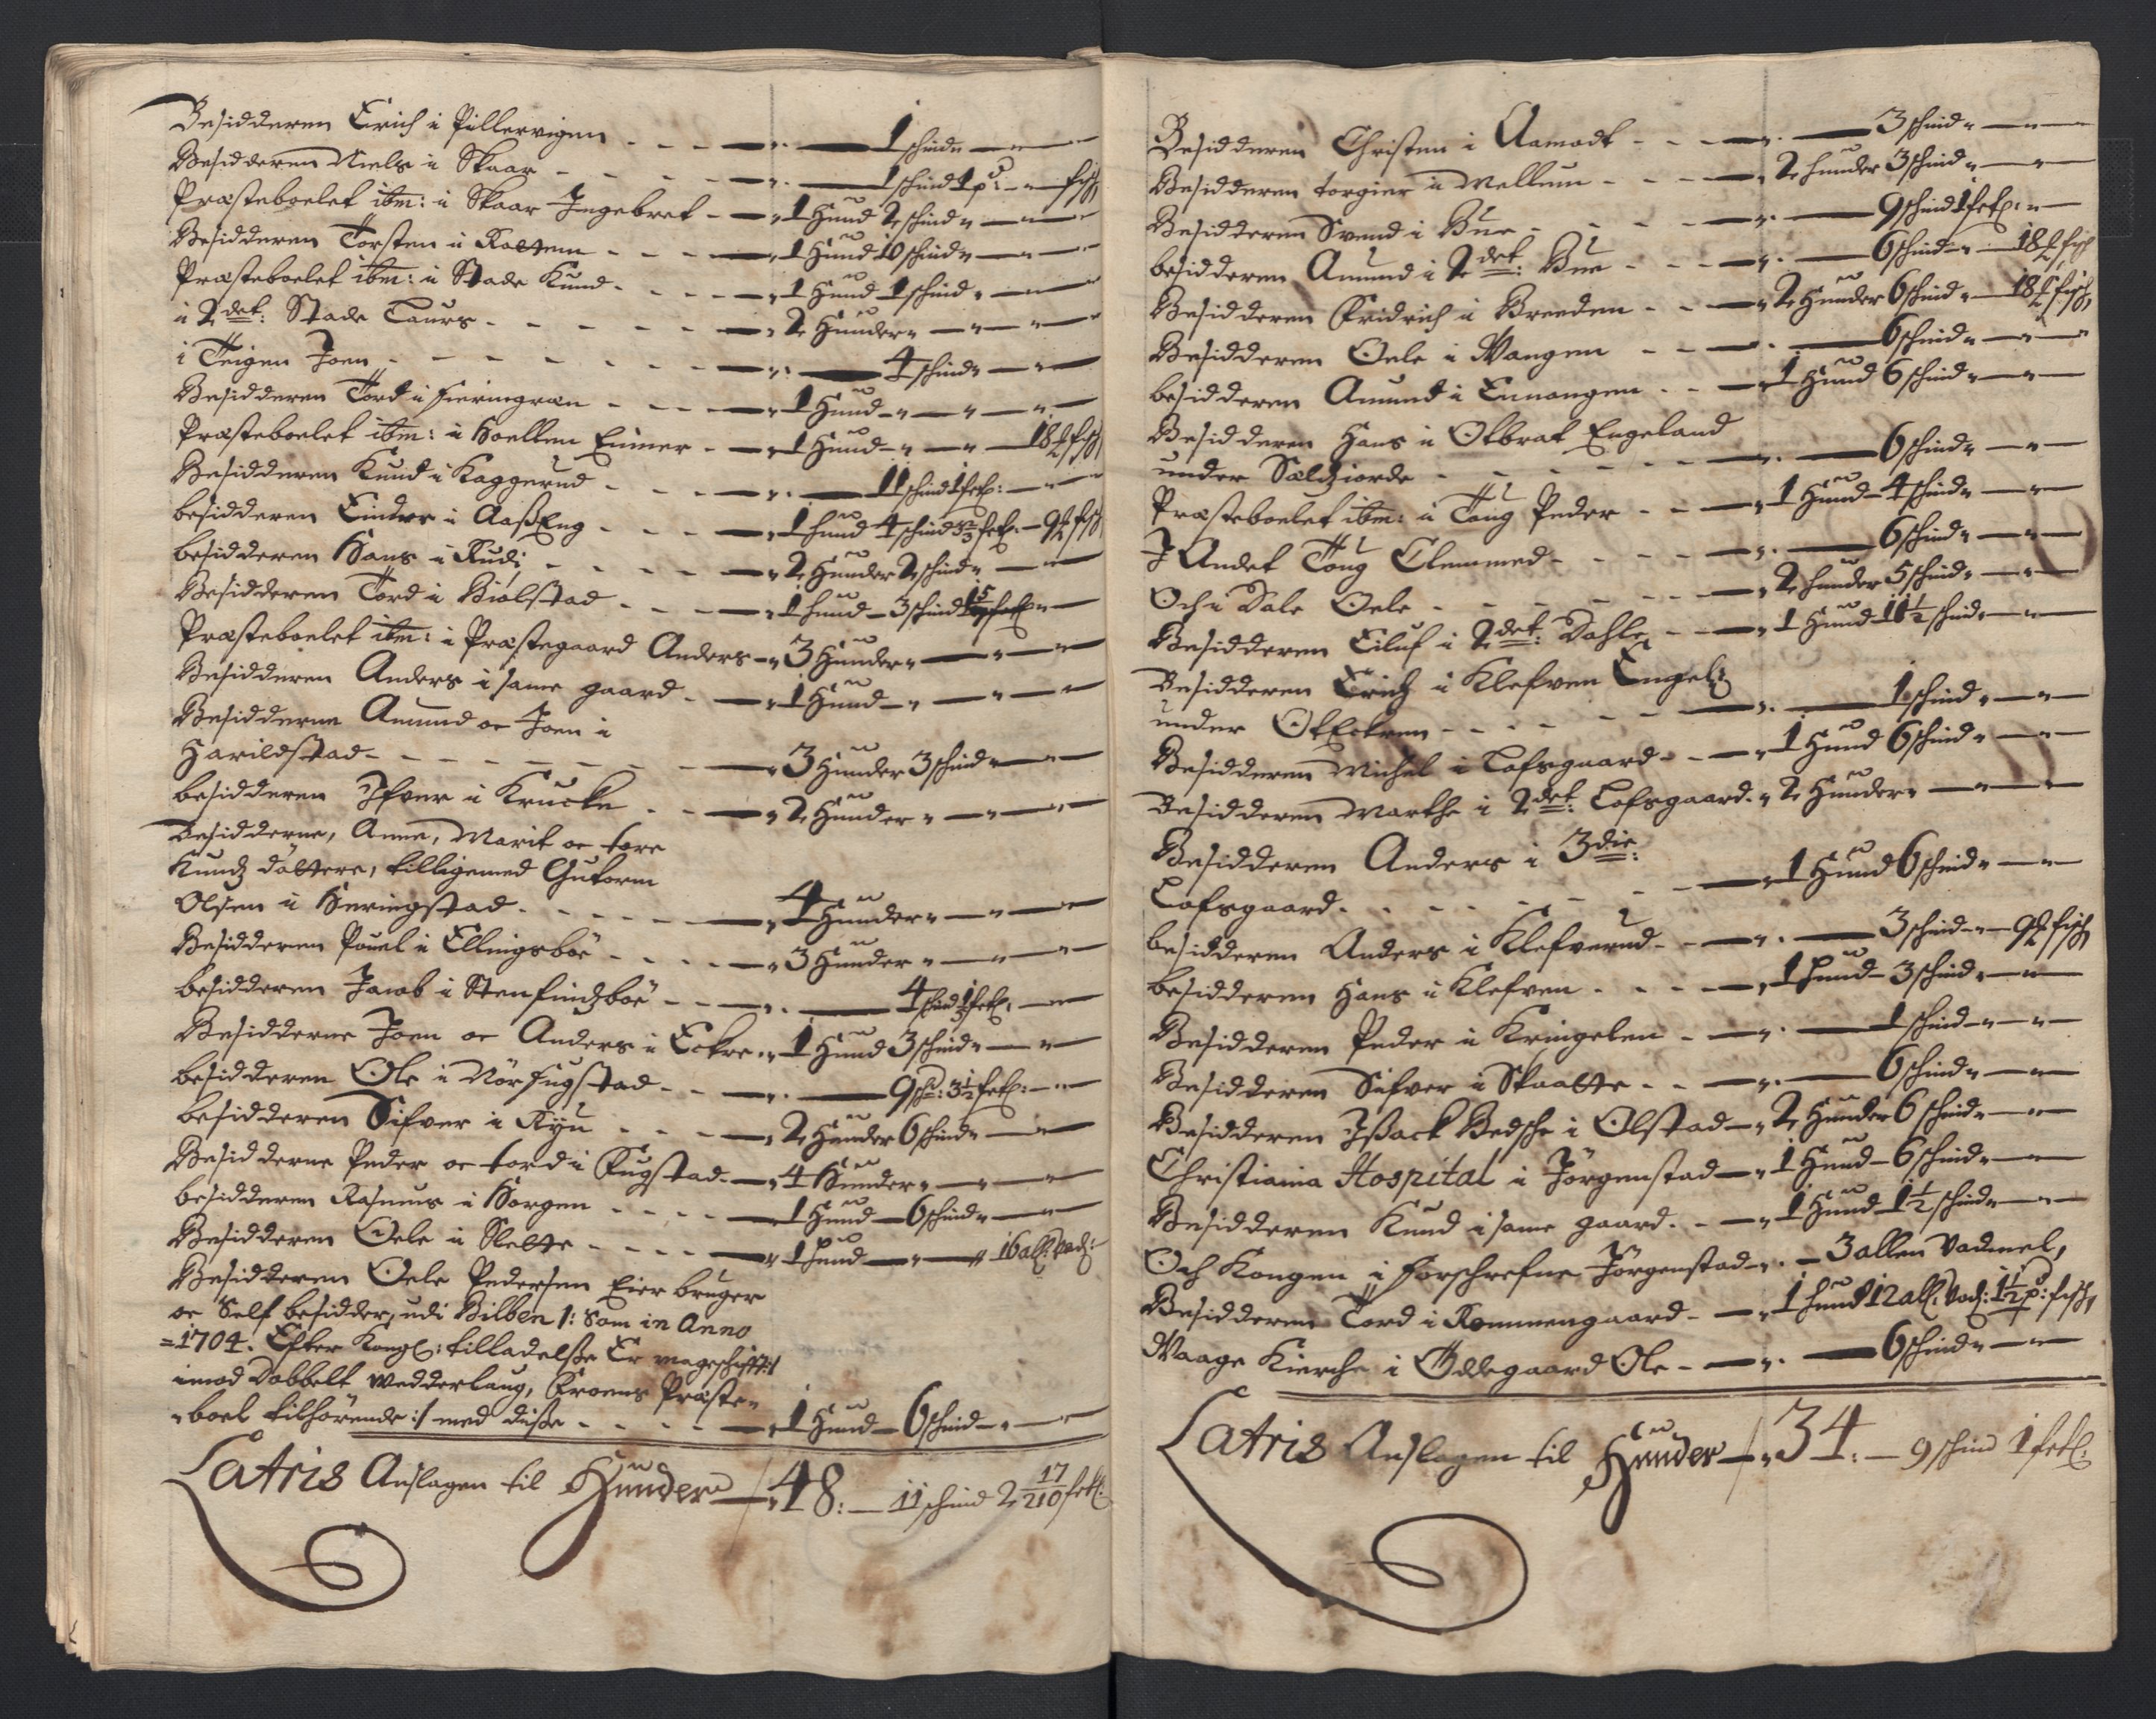 Besidderen Erich i Pillarvigen - - - — " — 1 schind " — " —
Besidderen Niels i Skaar - - - - — " — 1 schind 1 p: — " — fisch
Præsteboelet ibm: i Skaar Ingebret - — " 1 Hund 2 schind " — " —
Besidderen Torsten i Rottem - - - — " 1 Hund 10 schind " — " —
Præsteboelet ibm: i Stade Knud - - - — " 1 Hund 1 schind " — " —
i 2det: Stade Laurs - - - - - — " 2 Hunder " — " — " —
i Teigen Joen - - - - - — " — 4 schind " — " —
Besidderen Tord i Fieringræn - - - — " 1 Hund — " — " — " —
Præsteboelet ibm: i Hoellen Einer - — " 1 Hund — " — " — 18 ℔ fisch
Besidderen Knud i Kaggerud - - - — " — 11 schind 1 fetl: — " —
besidderen Einder i AaßEng - - - — " 1 hund 4 schind fetl: — 9 ℔ fisch
besidderen Hans i Rudi - - - - — " 2 Hunder 2 schind " — " —
Besidderen Tord i Biølstad - - - — " 1 hund — 3 schind
Præsteboelet ibm: i Præstegaard Anders — " 3 Hunder " — " — " —
Besidderen Anders i same gaard - — " 1 Hund — " — " — " —
Besidderne Amund oc Joen i
Harildstad - - - - - - - — " 3 Hunder 3 schind " — " —
besidderen Ifver i Krucke - - — " 2 Hunder " — " — " —
Besidderne, Anne, Marit oc tore
Knudz døttere, tilligemed Guttorm
Olsen i Heringstad - - - - - — " 4 Hunder " — " — " —
Besidderen Pouel i Ellingsböe - - - — " 3 Hunder " — " — " —
besidderen Jacob i Stenfindzboë - - — " — 4 schind fetl: — " —
Besidderne Joen oc Anders i Eckre " 1 Hund 3 schind " — " —
besidderen Ole i Nörfugstad - - — " — 9 sch: 3½ fetl: — " —
besidderen Sifver i Ryu - - - — " 2 Hunder 6 schind " — " —
Besidderne Peder oc tord i Fugstad — " 4 Hunder " — " — " —
besidderen Rasmus i Horgen - - - — 1 Hund — 6 schind " — " —
Besidderen Oele i Slette - - - — " 1 hund — " — " 16 all: vad:
Besidderen Oele Pedersen Eier bruger
oc Self besidder, udi Bilben /: Som in Anno
= 1704. Efter Kongl: tilladelße Er mageschifftt
imod Dobbelt Wedderlaug, Froens Præste=
=boel tilhörende :/ med diße - - - - — " 1 Hund — 6 schind — " —
Latris Anslagen til Hunder — " 48: — 11 schind 2 17/210 fetl:
Besidderen Christen i Aamodt - - - — " — 3 schind " — " —
Besidderen torgier i Mellum - - - — " 2 hunder 3 schind " — " —
Besidderen Svend i Bue - - - — " — 9 schind 1 fetl: " —
besidderen Amund i 2det: Bue - - - — " — 6 schind — " — 18 ℔ fisch
Besidderen Fridrich i Breeden - - — " 2 Hunder 6 schind " — 18 ℔ fisch
Besidderen Oele i Wangen - - — " — 6 schind " — " —
besidderen Amund i Ennangen - - — " 1 Hund 6 schind " — " —
Besidderen Hans i Otbrat Engeland
under Sælchiorde - - - - - — " — 6 schind " — " —
Præsteboelet ibm: i Toug Peder - - — " 1 Hund — 4 schind " — " —
I Andet Toug Clemmed - - - - — " — 6 schind " — " —
Och i Dale Oele - - - - - — " 2 hunder 5 schind " — " —
Besidderen Eiluf i 2det: Dahle - - — " 1 Hund 11½ schind " — " —
Besidderen Erich i Klefven Engel:
under OtEckren - - - - - - — " — 1 schind " — " —
Besidderen Michel i Lofsgaard - - — " 1 Hund 6 schind " — " —
Besidderen Marthe i 2det: Lofsgaard - " 2 Hunder " — " — " —
Besidderen Anders i 3die:
Lofsgaard - - - - - - — " 1 Hund 6 schind " — " —
besidderen Anders i Klefverud - - — " — 3 schind — " — 9 ℔ fisch
besidderen Hans i Klefven - - - - — " 1 hund — 3 schind " — " —
Besidderen Peder i Kringelen - - — " — 1 schind — " — " —
Besidderen Sifver i Skaatte - - — " — 6 schind " — " —
Besidderen Ißack Bedsche i Olstad — " 2 Hunder 6 schind " — " —
Christiania Hospital i Jörgenstad — " 1 Hund — 6 schind " — " —
Besidderen Knud i same gaard - - — " 1 Hund 1½ schind " — " —
Och Kongen i forschrefne Jörgenstad — " — 3 allen Vadmel,
Besidderen Tord i Rommengaard - — " 1 hund 12 all: Vad: 1½ p: fisch
Waage Kierche i Ödegaard Ole - — " — 6 schind " — " —
Latris Anslagen til Hunder — " 34: — 9 schind 1 fetl: